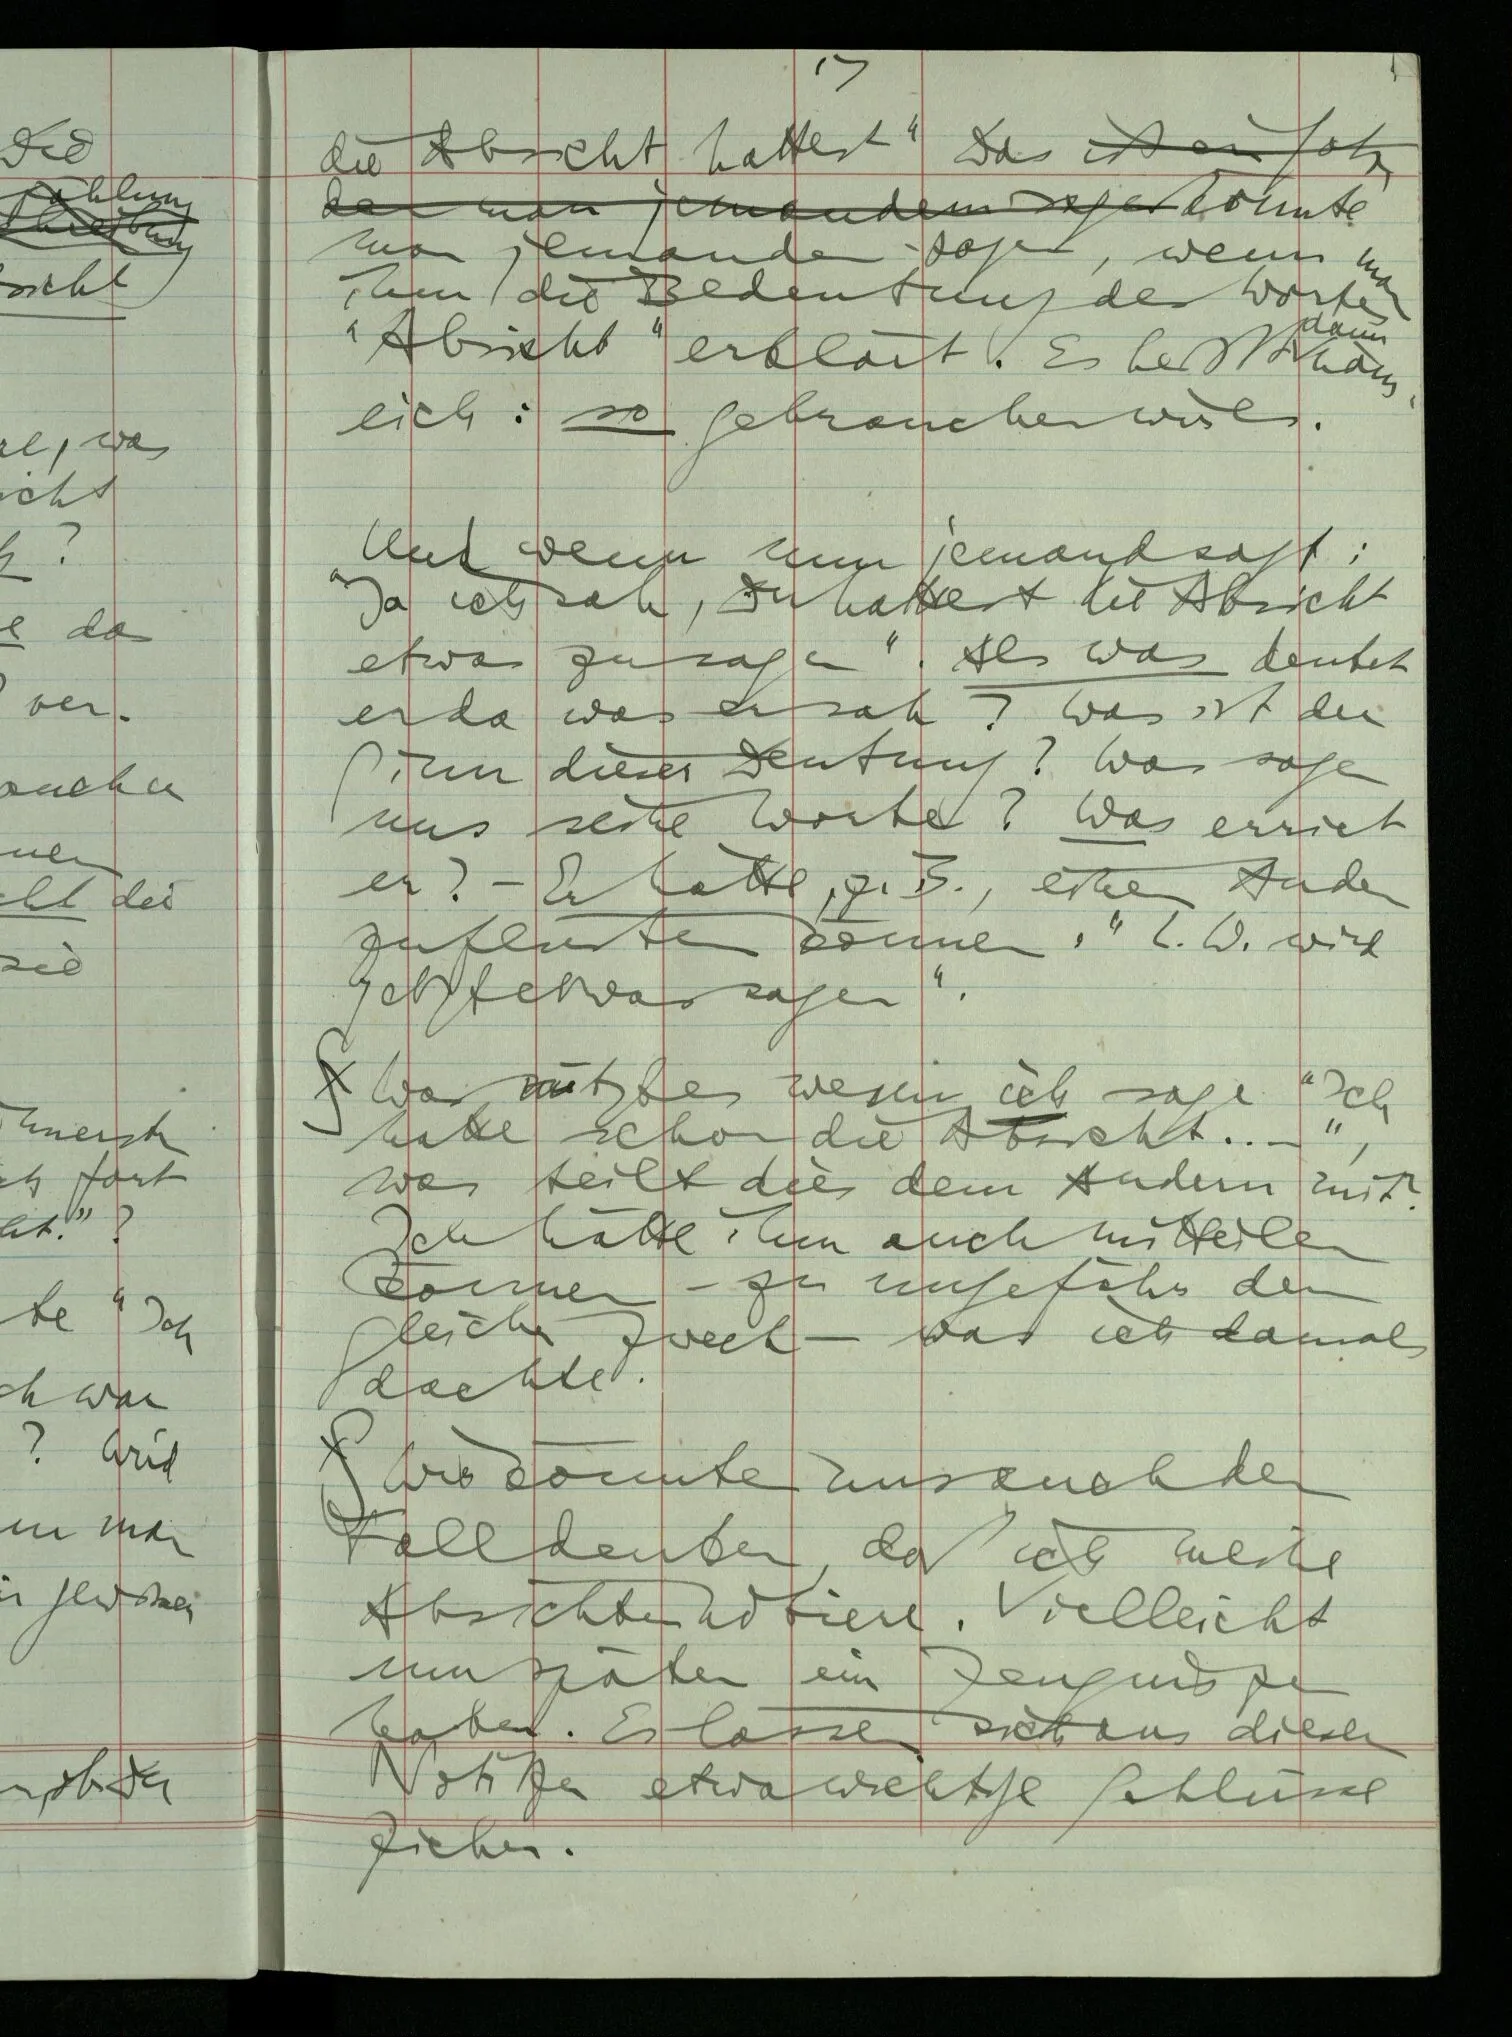 17
die Absicht hattest" Das ist ein Satz,
den man jemandem sagen könnte
man jemandem sagen, wenn man
ihm die Bedeutung des Wortes
"Absicht" erklärt. Es heißt dann näm-
lich: so gebrauchen wir's.
Und wenn nun jemand sagt:
"Ja ich sah, Du hattest die Absicht
etwas zu sagen". Als was deutet
er da was er sah? Was ist der
Sinn dieser Deutung? Was sagen
uns seine Worte? Was erriet
er? – Er hätte, z.B., einem Andern
zuflüstern können: "L.W. wird
jetzt etwas sagen".
Was nützt es wenn ich sage "Ich
hatte schon die Absicht....",
was teilt dies dem Andern mit?
Ich hätte ihm auch mitteilen
können – zu ungefähr dem
gleichen Zweck – was ich damals
dachte.
Wir könnten uns auch den
Fall denken, daß ich meine
Absichten notiere. Vielleicht
um später ein Zeugnis zu
haben. Es lassen sich aus diesen
Notizen etwa wichtige Schlüsse
ziehen.
Die
sicht
was
icht
?
da
ver-
die
sie
fort
?
te "Ich
ch war
? Wird
man